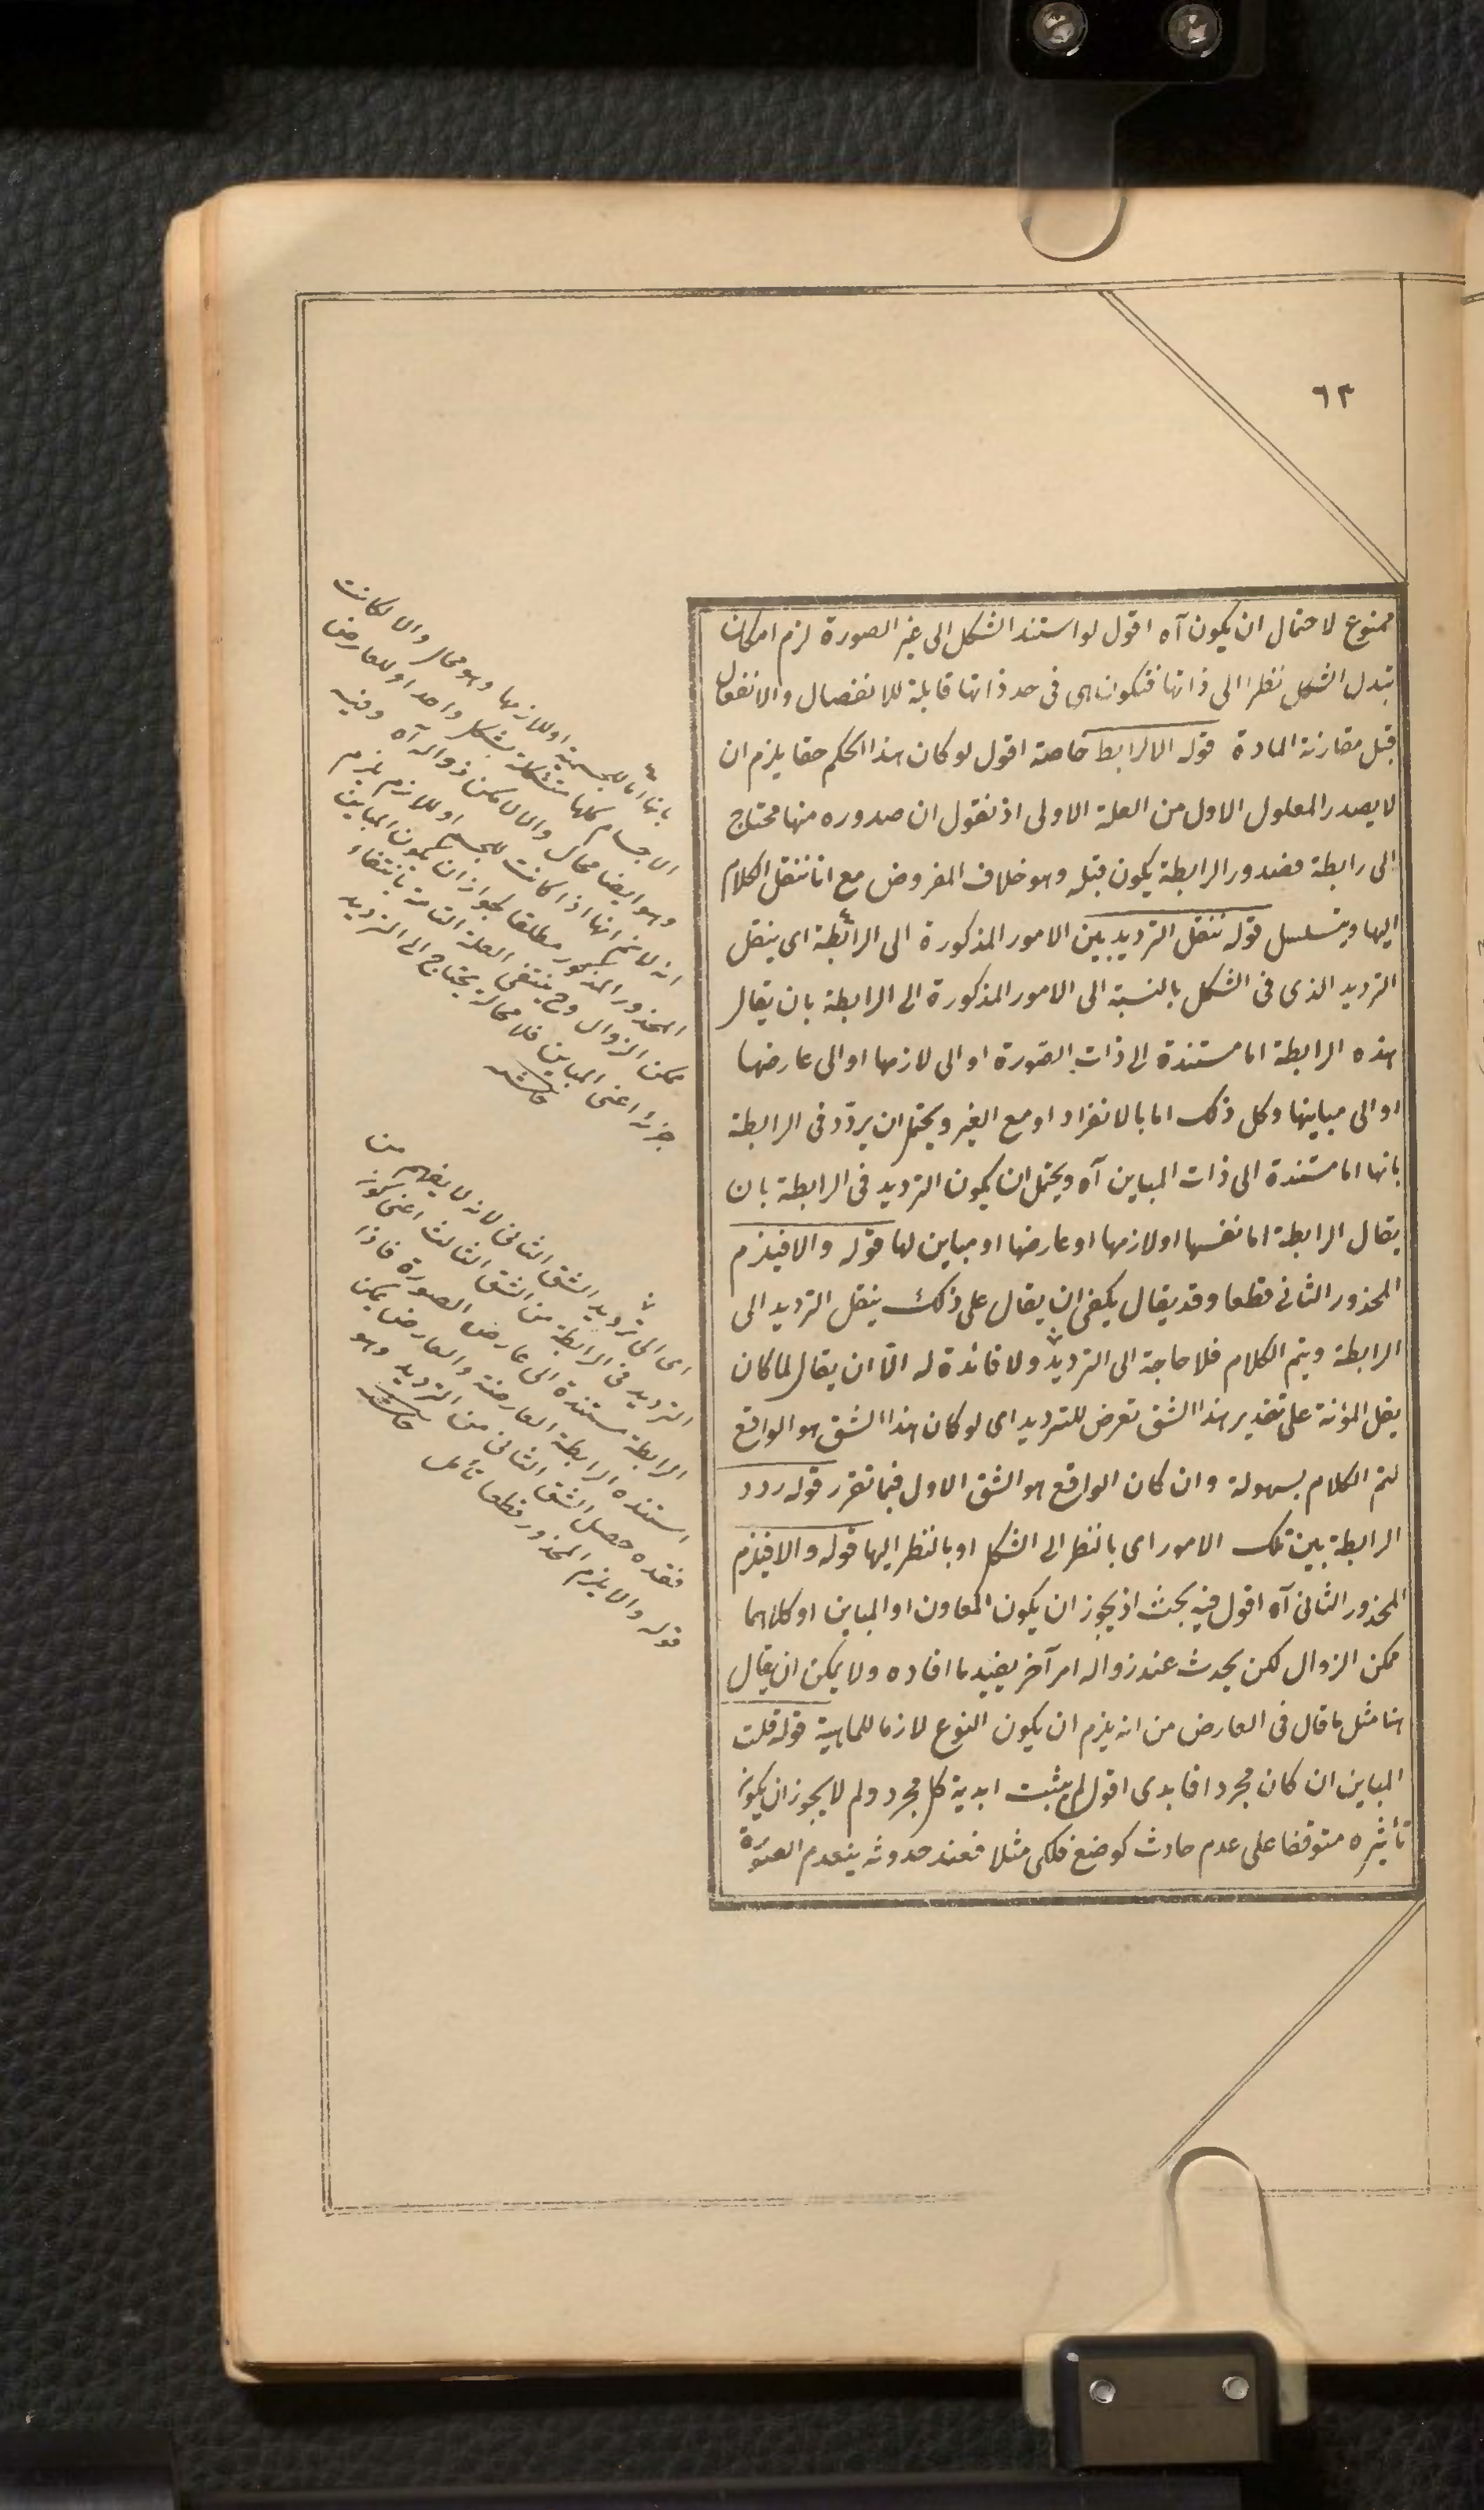 ٦٣
ممنوع لاحتمال ان يكون آه اقول لو استند الشكل الى غير الصورة لزم امكان
تبدل الشكل نظرا الى ذاتها فتكون هى فى حد ذاتها قابلة للانفصال والانفعال
قبل مقارنة المادة قوله الا لرابط خاصة اقول لو كان هذا الحكم حقا يلزم ان
لا يصدر المعلول الاول من العلة الاولى اذ نقول ان صدوره منها محتاج
الى رابطة فصدور الرابطة يكون قبله وهو خلاف المفروض مع انا ننقل الكلام
اليها ويتسلسل قوله ننقل الترديد بين الامور المذكورة الى الرابطة اى ينقل
الترديد الذى فى الشكل بالنسبة الى الامور المذكورة الى الرابطة بان يقال
هذه الرابطة اما مستندة الى ذات الصورة او الى لازمها او الى عارضها
او الى مباينها وكل ذلك اما بالانفراد او مع الغير ويحتمل ان يردد فى الرابطة
بانها اما مستندة الى ذات المباين آه ويحتمل ان يكون الترديد فى الرابطة بان
يقال الرابطة اما نفسها او لازمها او عارضها او مباين لها قوله والا فيلزم
المحذور الثانى قطعا وقد يقال يكفى ان يقال على ذلك ينقل الترديد الى
الرابطة ويتم الكلام فلا حاجة الى الترديد ولا فائدة له الا ان يقال لما كان
يقل المؤنة على تقدير هذا الشق تعرض للترديد اى لو كان هذا الشق هو الواقع
لتم الكلام بسهولة وان كان الواقع هو الشق الاول فيما تقرر قوله ردد
الرابطة بين تلك الامور اى بالنظر الى الشكل او بالنظر اليها قوله والا فيلزم
المحذور الثانى آه اقول فيه بحث اذ يجوز ان يكون المعاون او المباين او كلاهما
ممكن الزوال لكن يحدث عند زواله امر آخر يفيد ما افاده ولا يمكن ان يقال
هنا مثل ما قال فى العارض من انه يلزم ان يكون النوع لازما للماهية قوله قلت
المباين ان كان مجردا فابدى اقول لم يثبت ابدية كل مجرد ولم لا يجوز ان يكون
تأثيره متوقفا على عدم حادث كوضع فلكى مثلا فعند حدوثه ينعدم الصورة
بانها اما للجسمية او للازمها وهو محال والا لكانت
الاجسام كلها متشكلة بشكل واحد او للعارض
وهو ايضا محال والا لامكن زواله آه وفيه
انه لا نم انها اذا كانت للجسم او للازم يلزم
المحذور المذكور مطلقا لجواز ان يكون المباين
ممكن الزوال وح ينتفى العلة التامة بانتفاء
جزئه اعنى المباين فلا محالة يحتاج الى الترديد
اى الى ترديد الشق الثانى لانه لا يفهم من
الترديد فى الرابطة من الشق الثالث اعنى كون
الرابطة مستندة الى عارض الصورة فاذا
استنده الرابطة العارضة والعارض يمكن
فقده حصل الشق الثانى من الترديد وهو
قوله والا يلزم المحذور قطعا تأمل